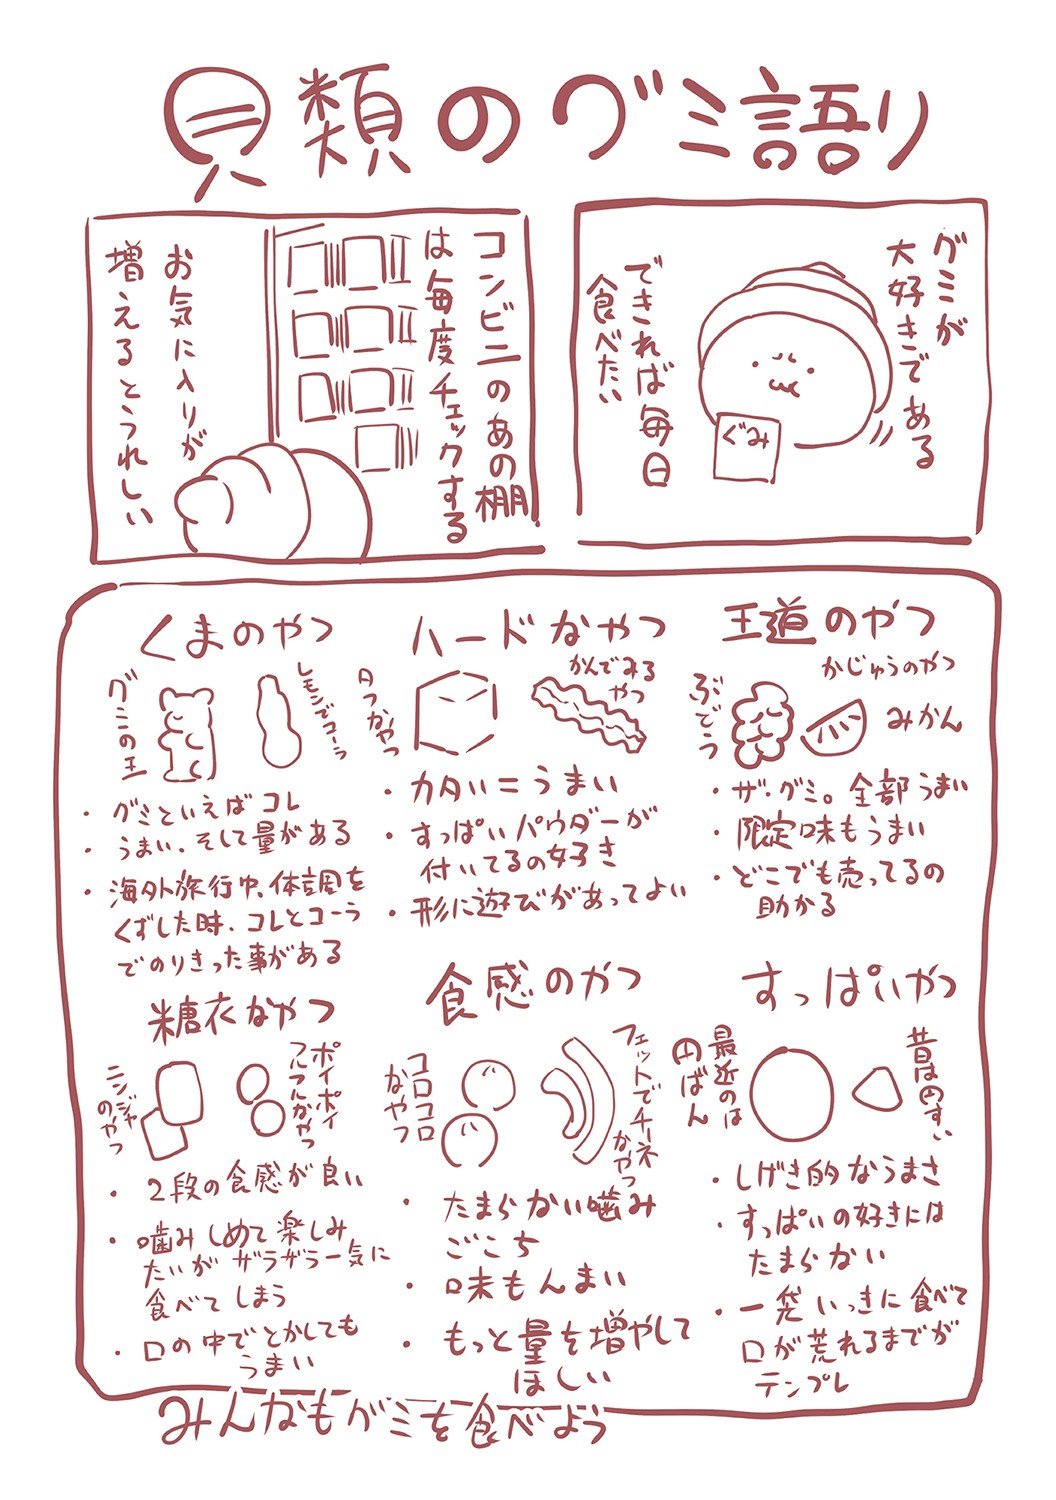 貝類のグミ語り
グミが
大好きである
できれば毎日
食べたい
ぐみ
コンビニのあの棚
は毎度チェックする
お気に入りが
増えるとうれしい
王道のやつ
かじゅうのやつ
ぶどう
みかん
・ザ・グミ。全部うまい
・限定味もうまい
・どこでも売ってるの
助かる
ハードなやつ
タフなやつ
かんでみる
やつ
・カタい=うまい
・すっぱいパウダーが
付いてるの好き
・形に遊びがあってよい
くまのやつ
グミの王
レモンでコーラ
・グミといえばコレ
・うまい、そして量がある
・海外旅行中、体調を
くずした時、コレとコーラ
でのりきった事がある
すっぱいやつ
昔は円すい
最近のは
円ばん
・しげき的なうまさ
・すっぱいの好きには
たまらない
・一袋いっきに食べて
口が荒れるまでが
テンプレ
食感のやつ
フェットでチーネ
なやつ
コロコロ
なやつ
・たまらない噛み
ごこち
・味もんまい
・もっと量を増やして
ほしい
糖衣なやつ
ポイポイ
フルフルなやつ
ニンジャ
のやつ
・2段の食感が良い
・噛みしめて楽しみ
たいがザラザラー気に
食べてしまう
・口の中でとかしても
うまい
みんなもグミを食べよう